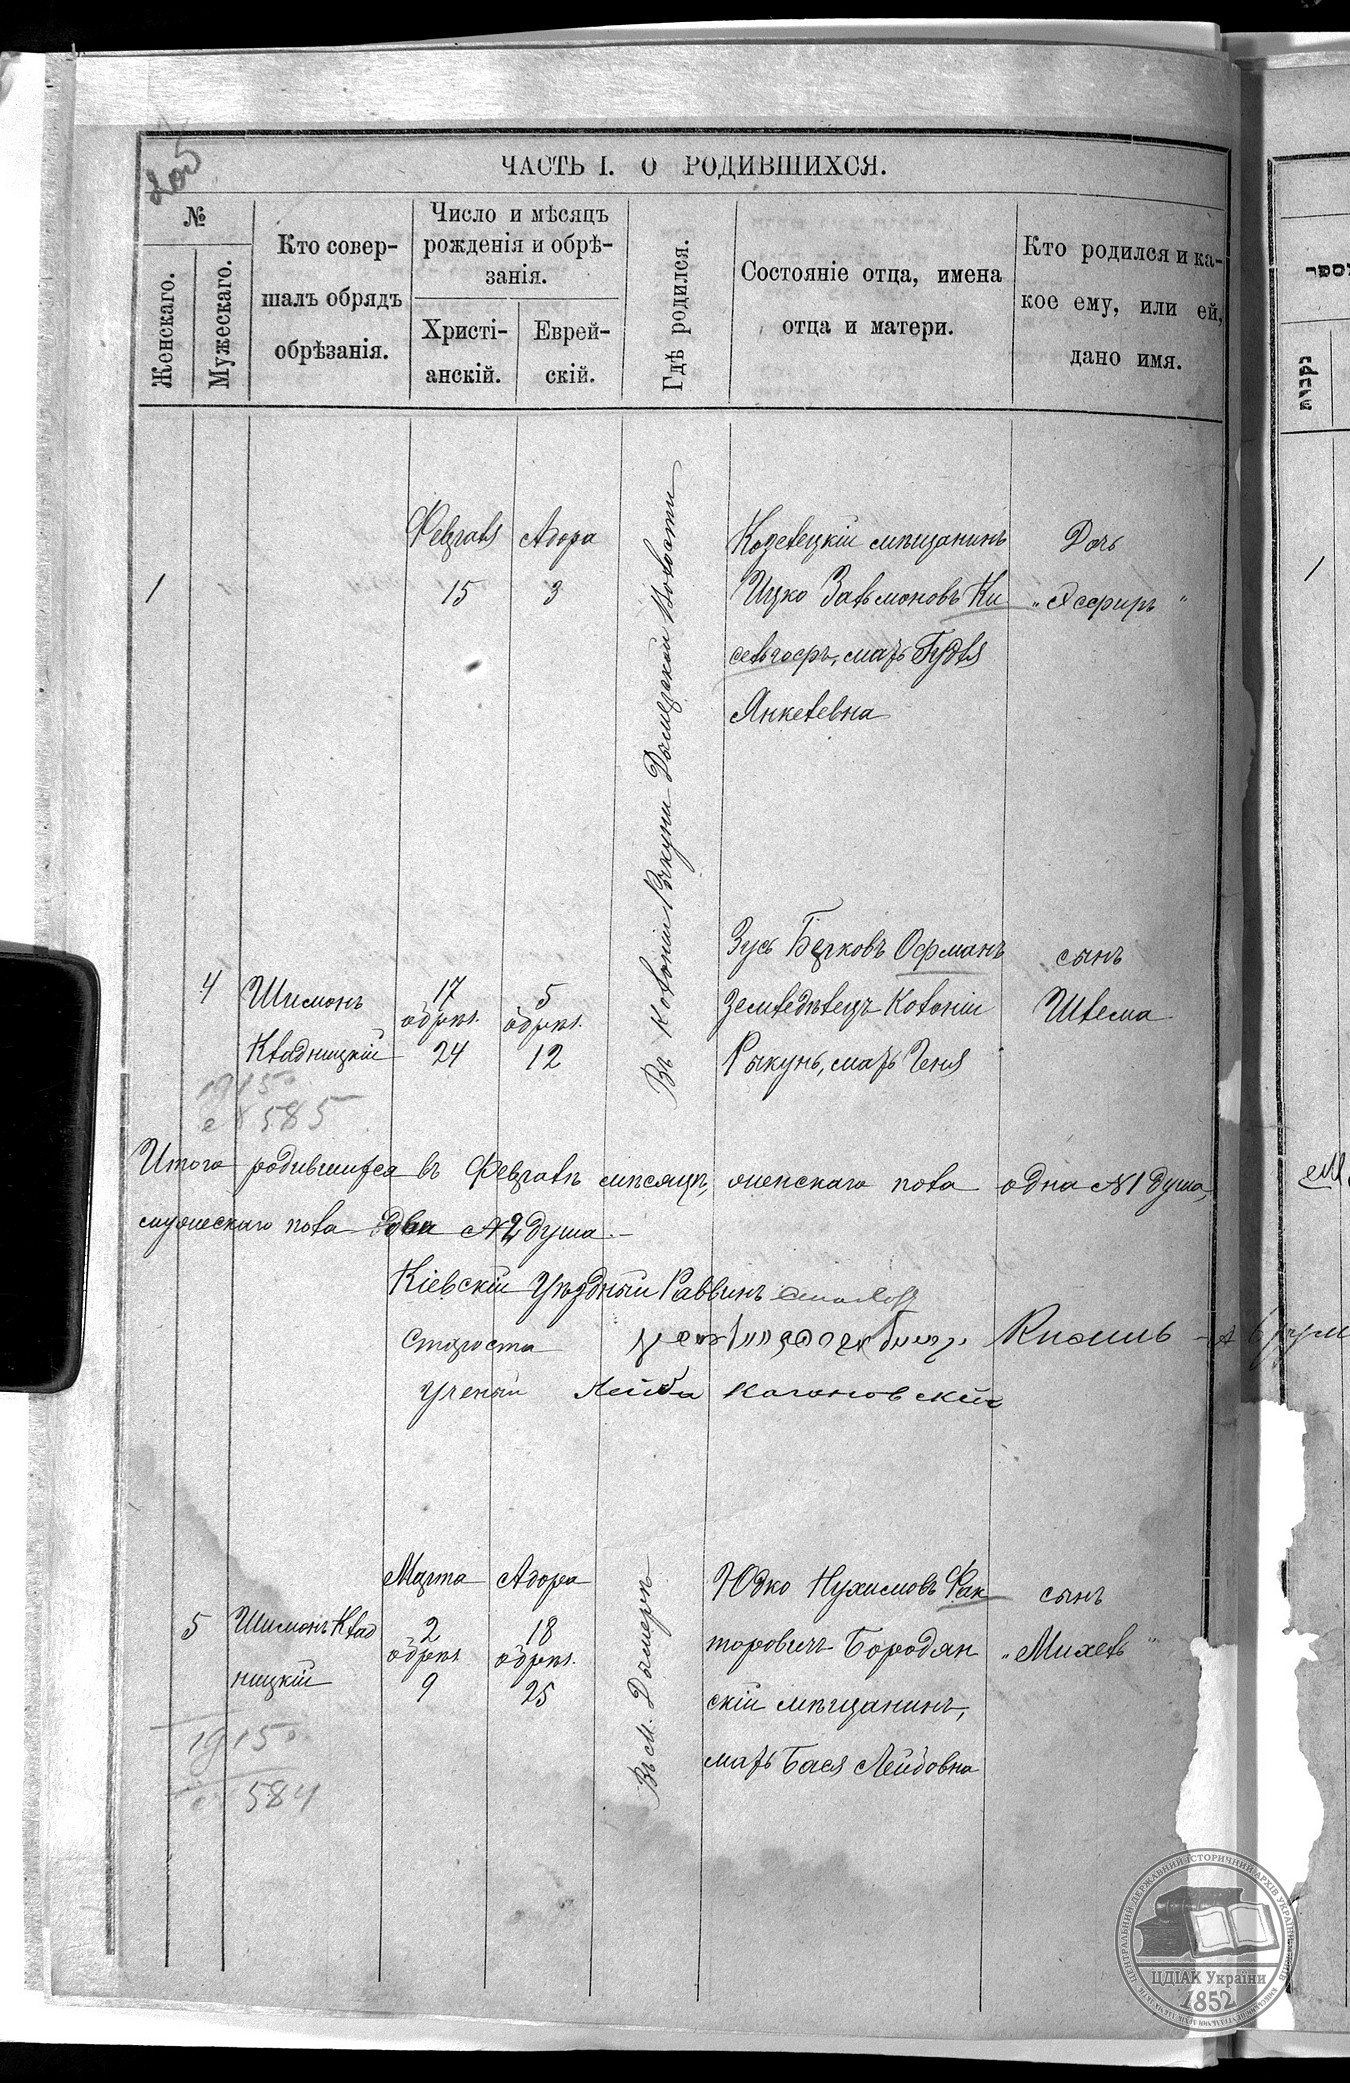 205
ЧАСТЬ I. О РОДИВШИХСЯ.
№
Женскаго.
Мужескаго.
Кто совер-
шалъ обрядъ
обрѣзанія.
Число и мѣсяцъ
рожденія и обрѣ-
занія.
Христі-
анскій.
Еврей-
скій.
Гдѣ родился.
Состояніе отца, имена
отца и матери.
Кто родился и ка-
кое ему, или ей,
дано имя.
נקבות
1
Февраля
15
Адора
3
Въ Колоніи Рыкуни Дымерской Волости
Козелецкій мѣщанинъ
Ицко Залмоновъ Ки
сельгофъ, мать Гудля
Янкелевна
Дочь
„Эсфирь"
1
4
Шимонъ
Квадницкій
17
обрѣз.
24
5
обрѣз.
12
Зусь Берковъ Офманъ
земледѣлецъ Колоніи
Рыкунь, мать Геня
сынъ
Шлема
1915
585
Итого родившихся въ Февралѣ мѣсяцѣ, женскаго пола одна №1 душа,
мужескаго пола два №2 душа.
Кіевскій Уѣздный Раввинъ
Староста
Ученый Лейба Кагановскій
5
Шимонъ Квад
ницкій
Марта
2
обрѣз.
9
Адора
18
обрѣз.
25
Въ м. Дымерѣ
Юдко Нухимовъ Фак
торовичъ Бородян
скій мѣщанинъ,
мать Бася Лейбовна
сынъ
„Михель"
1915
584
ЦЕНТРАЛЬНИЙ ДЕРЖАВНИЙ ІСТОРИЧНИЙ АРХІВ УКРАЇНИ
ЦДІАК України
1852